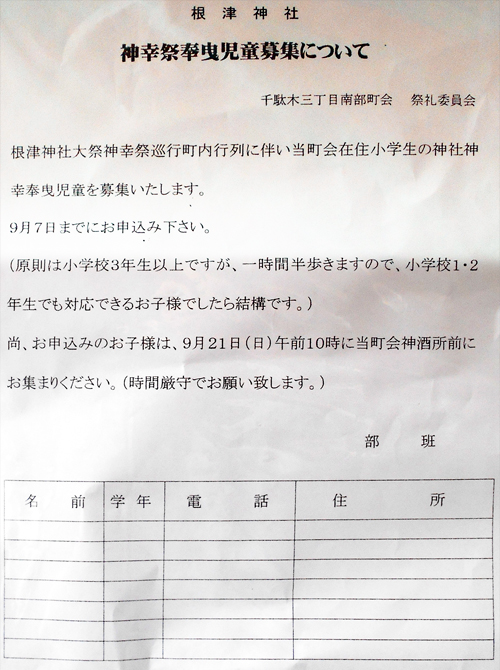 根津神社
神幸祭奉曳児童募集について
千駄木三丁目南部町会 祭礼委員会
根津神社大祭神幸祭巡行町内行列に伴い当町会在住小学生の神社神
幸奉曳児童を募集いたします。
9月7日までにお申込み下さい。
(原則は小学校3年生以上ですが、一時間半歩きますので、小学校1・2
年生でも対応できるお子様でしたら結構です。)
尚、お申込みのお子様は、9月21日(日)午前10時に当町会神酒所前に
お集まりください。(時間厳守でお願い致します。)
部 班
名 前 学 年 電 話 住 所